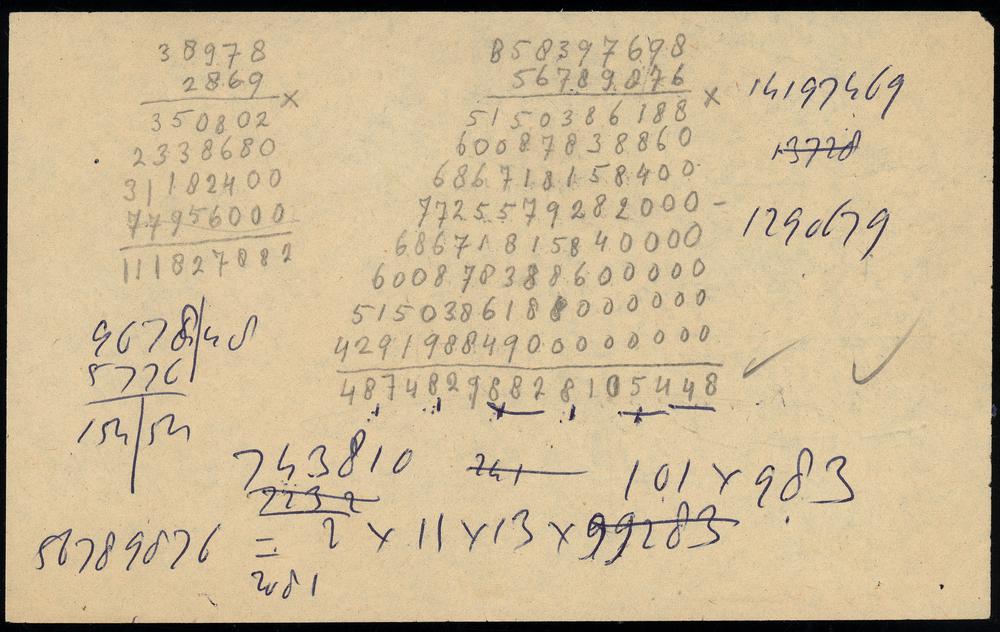 38978
2869
×
350802
2338680
31182400
77956000
111827882
858397698
56789876
×
5150386188
60087838860
686718158400
7725579282000 –
68671815840000
600878388600000
5150386188000000
42919884900000000
48748298828105448
14197469
13728
1290679
9678 48
5776
154 54
743810
2232
241
101 × 983
56789876 = 2 × 11 × 13 × 99283